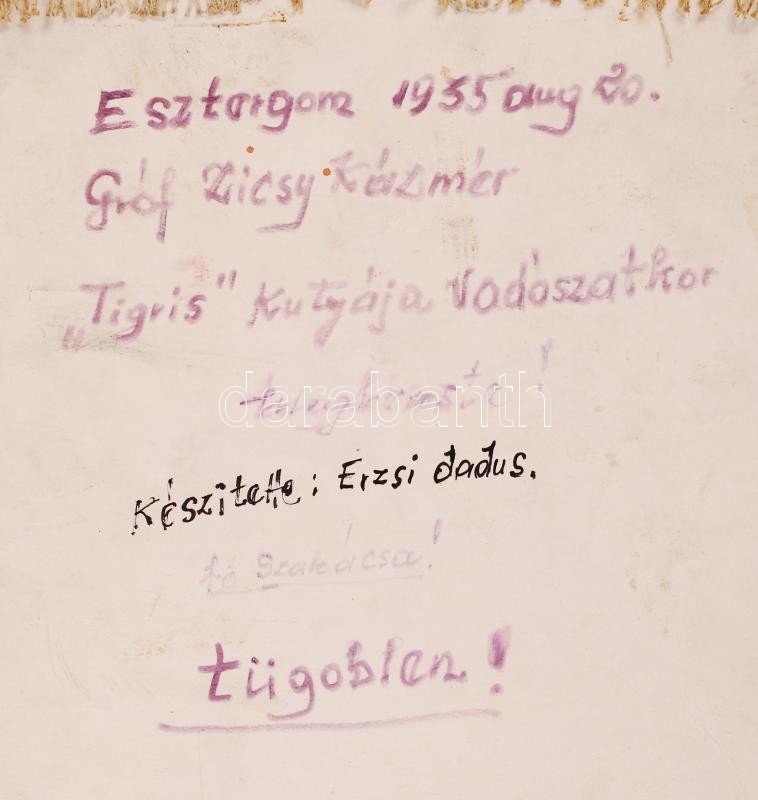 Esztergom 1935 aug 20.
Gróf Zicsy Kázmér
„Tigris" Kutyája Vadászatkor
darabanth
Készitette: Erzsi dadus.
fő Szakácsa!
tügoblen!